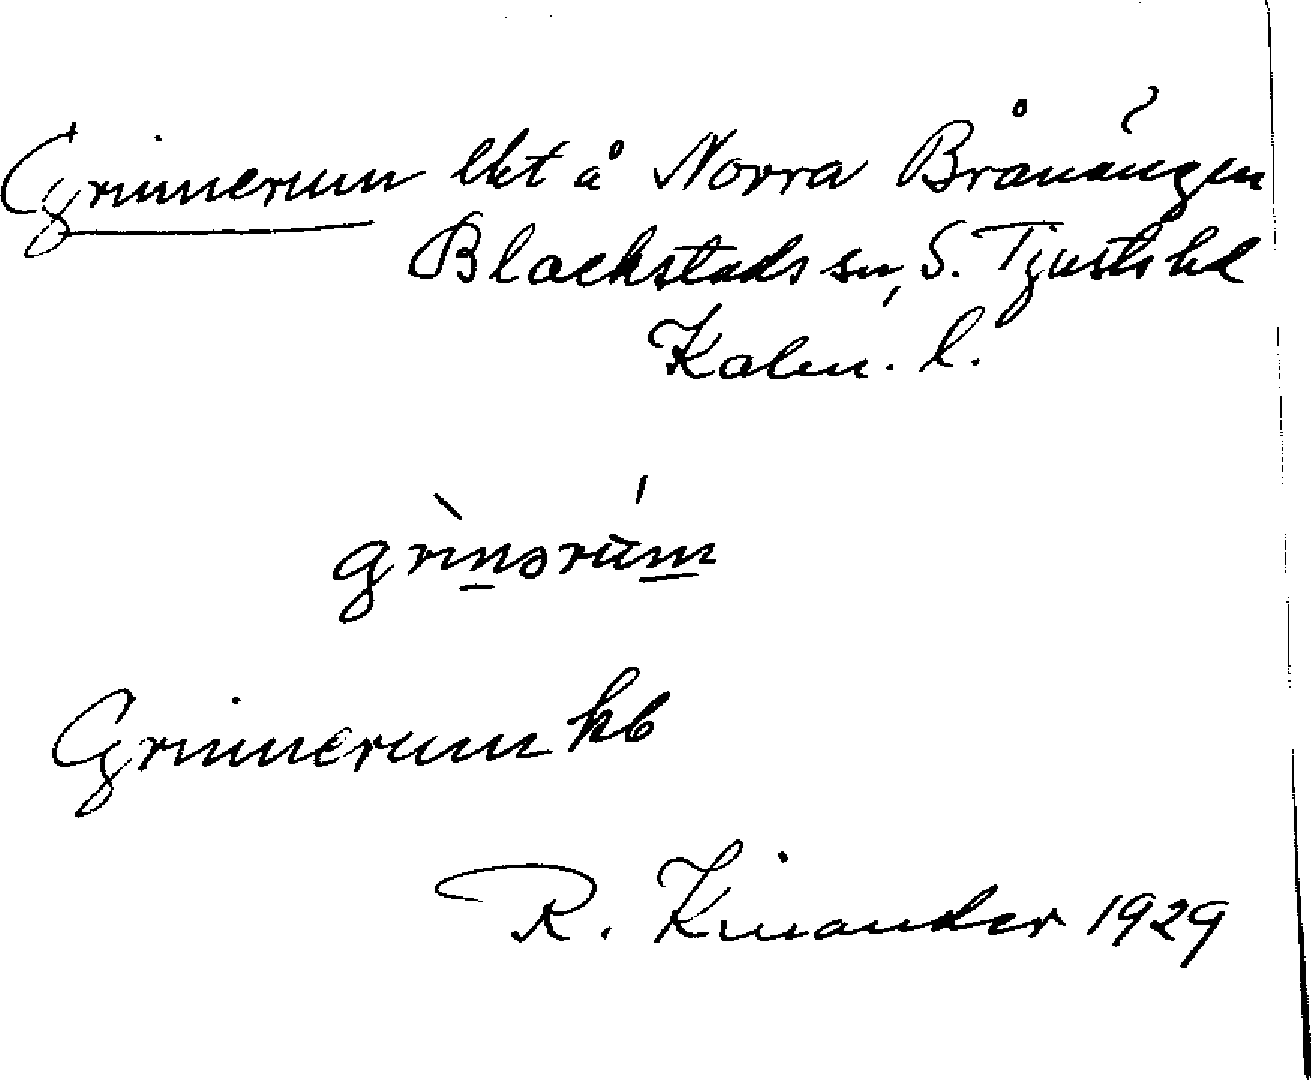 Grinnerum lht å Norra Brånängen
Blackstads sn, S. Tjusts hd
Kalm. l.
grìnərúm
Grinnerum kb
R. Kinander 1929